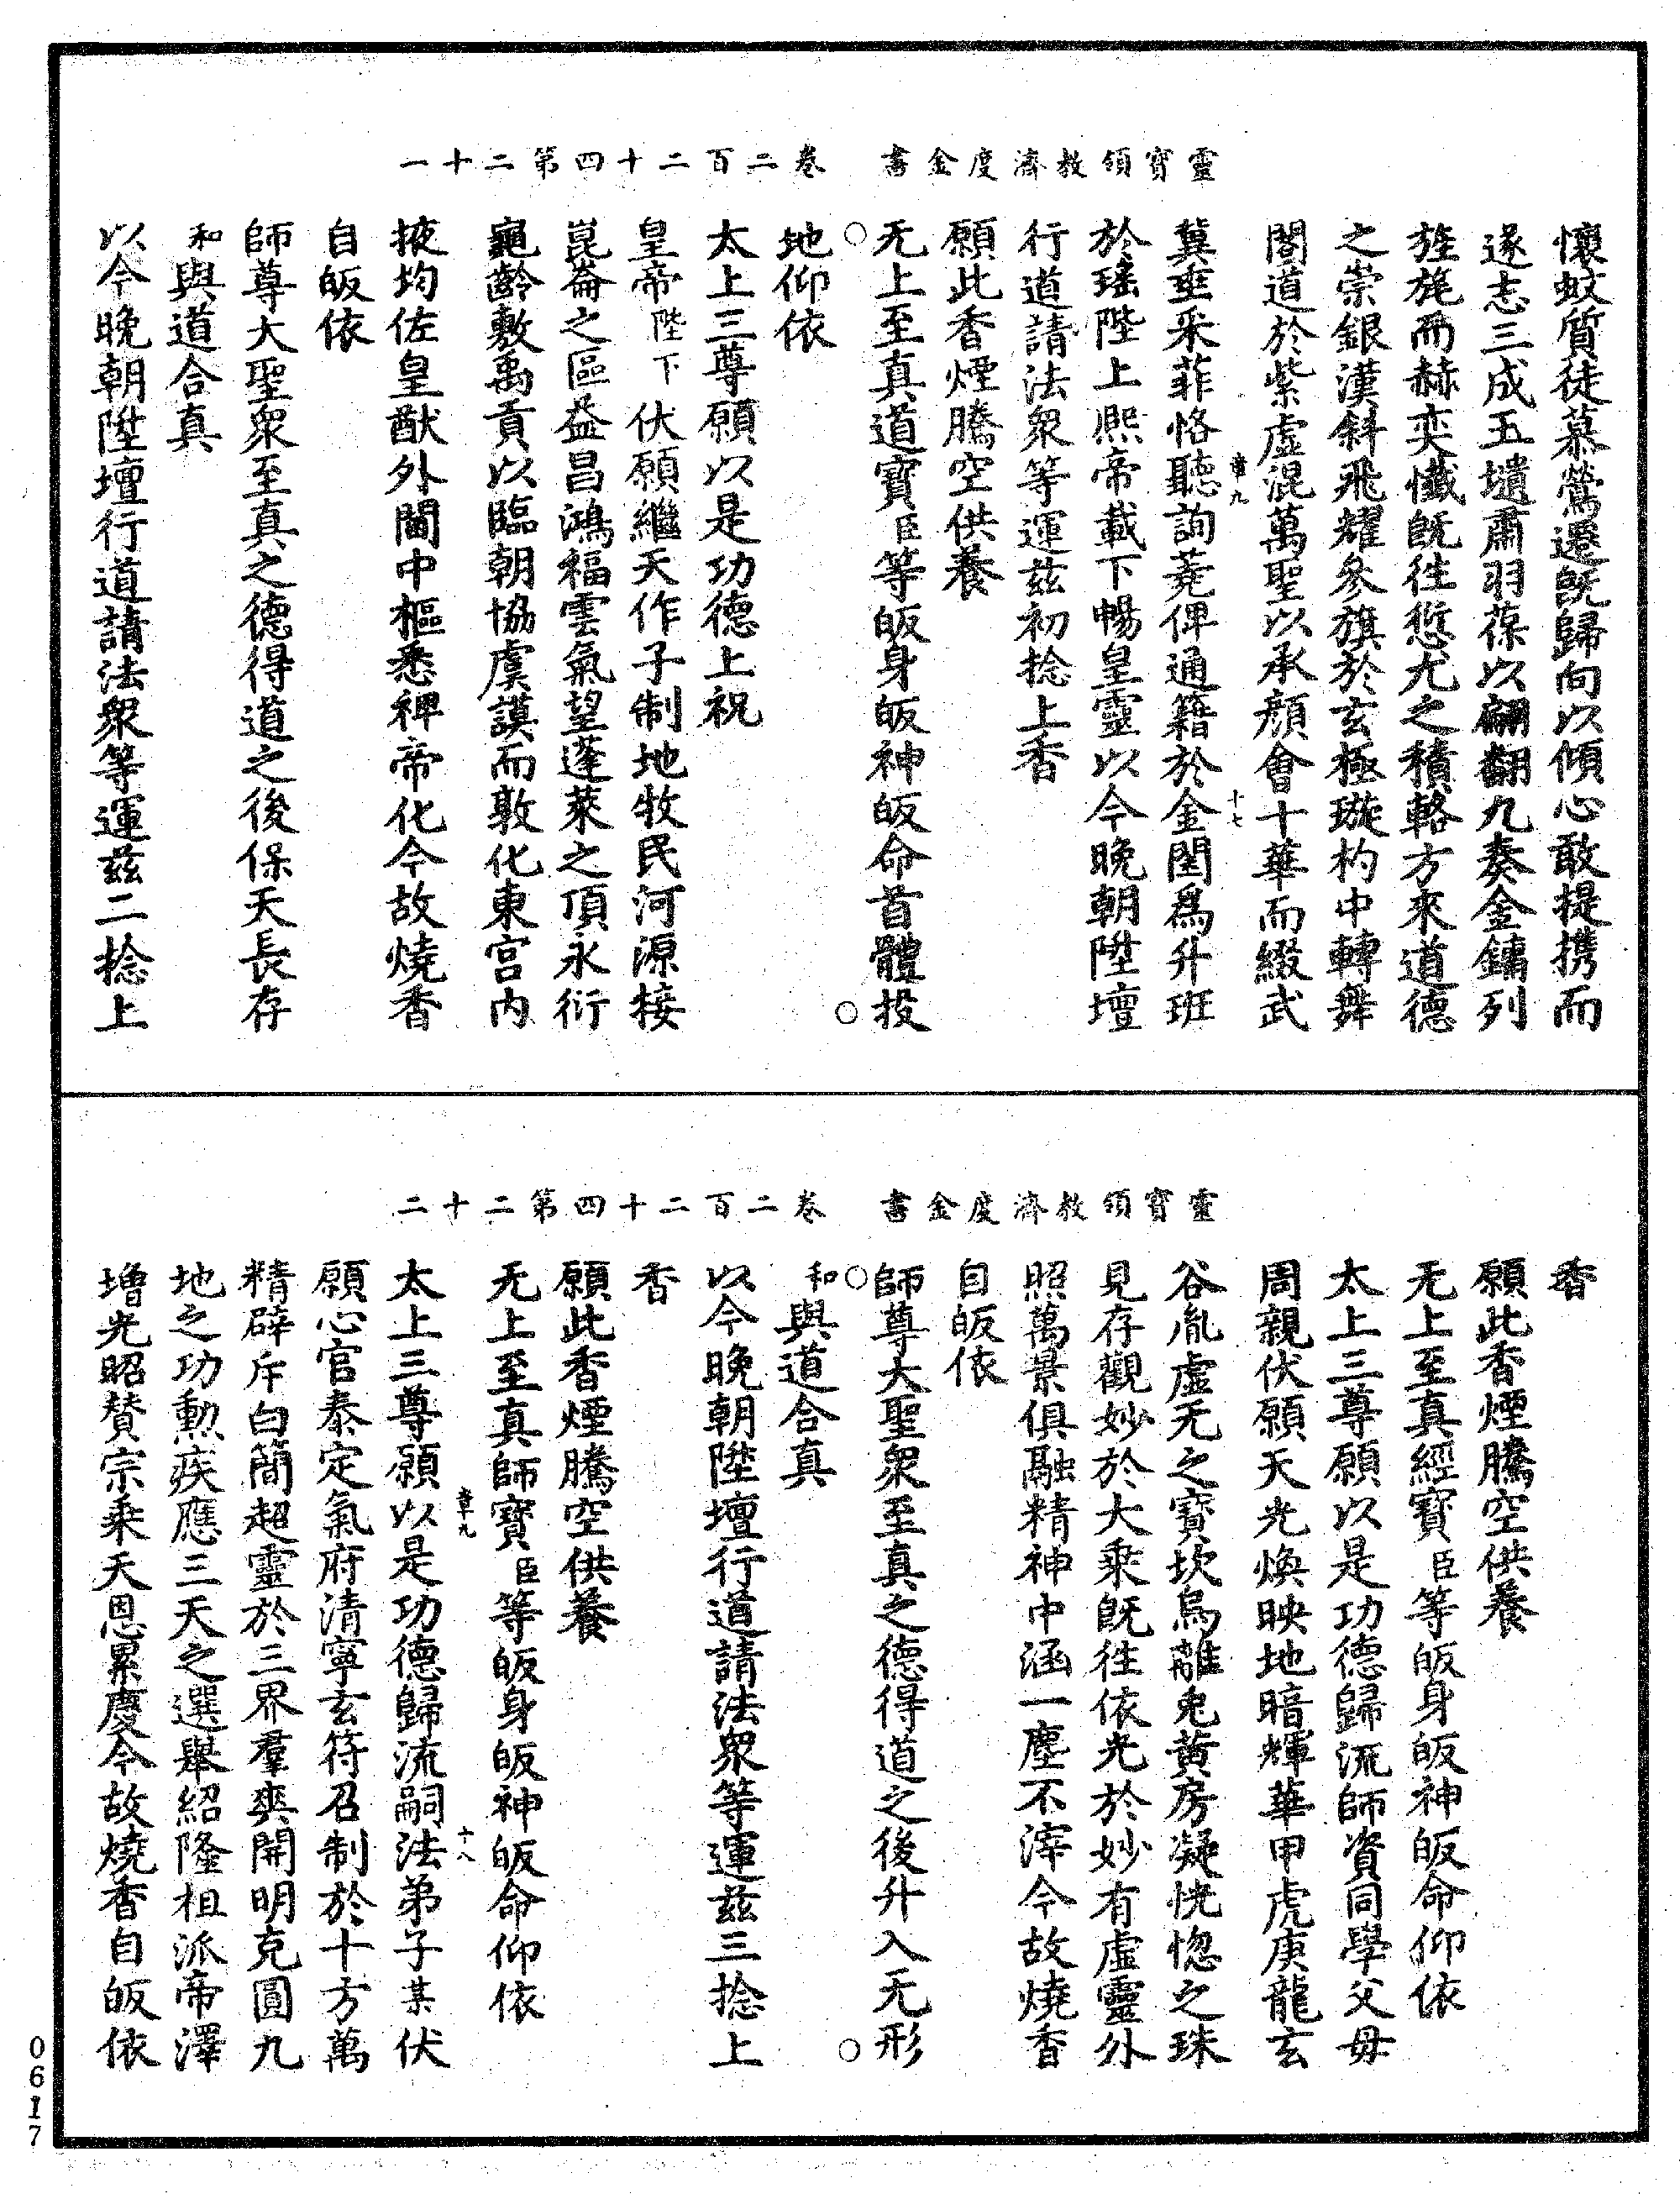 靈寶領教濟度金書　卷二百二十四第二十一
懷蚊質徒慕鶯遷既歸向以傾心敢提携而
遂志三成玉壝肅羽葆以翩翻九奏金鏞列
旌旄而赫奕懺既往愆尤之積輅方來道德
之崇銀漢斜飛耀參旗於玄極璇杓中轉舞
閣道於紫虛混萬聖以承顏會十華而綴武
章九
十七
冀垂采菲恪聽詢蕘俾通籍於金閨爲升班
於瑤陛上熙帝載下暢皇靈以今晚朝陞壇
行道請法眾等運茲初捻上香
願此香煙騰空供養
无上至真道寶臣等皈身皈神皈命首體投
地仰依
太上三尊願以是功德上祝
皇帝陛下伏願繼天作子制地牧民河源接
崑崙之區益昌鴻福雲氣望蓬萊之頂永衍
龜齡敷禹貢以臨朝協虞謨而敦化東宮內
掖均佐皇猷外閫中樞悉裨帝化今故燒香
自皈依
師尊大聖眾至真之德得道之後保天長存
和與道合真
以今晚朝陞壇行道請法眾等運茲二捻上
靈寶領教濟度金書　卷二百二十四第二十二
香
願此香煙騰空供養
无上至真經寶臣等皈身皈神皈命仰依
太上三尊願以是功德歸流師資同學父母
周親伏願天光煥映地暗輝華甲虎庚龍玄
谷胤虛无之寶坎烏離兔黃房凝恍惚之珠
見存觀妙於大乘既往依光於妙有虛靈外
照萬景俱融精神中涵一塵不滓今故燒香
自皈依
師尊大聖眾至真之德得道之後升入无形
和與道合真
以今晚朝陞壇行道請法眾等運茲三捻上
香
願此香煙騰空供養
无上至真師寶臣等皈身皈神皈命仰依
章九
十八
太上三尊願以是功德歸流嗣法弟子某伏
願心官泰定氣府清寧玄符召制於十方萬
精辟斥白簡超靈於三界羣爽開明克圓九
地之功勳疾應三天之選舉紹隆祖派帝澤
增光昭贊宗乘天恩累慶今故燒香自皈依
0617